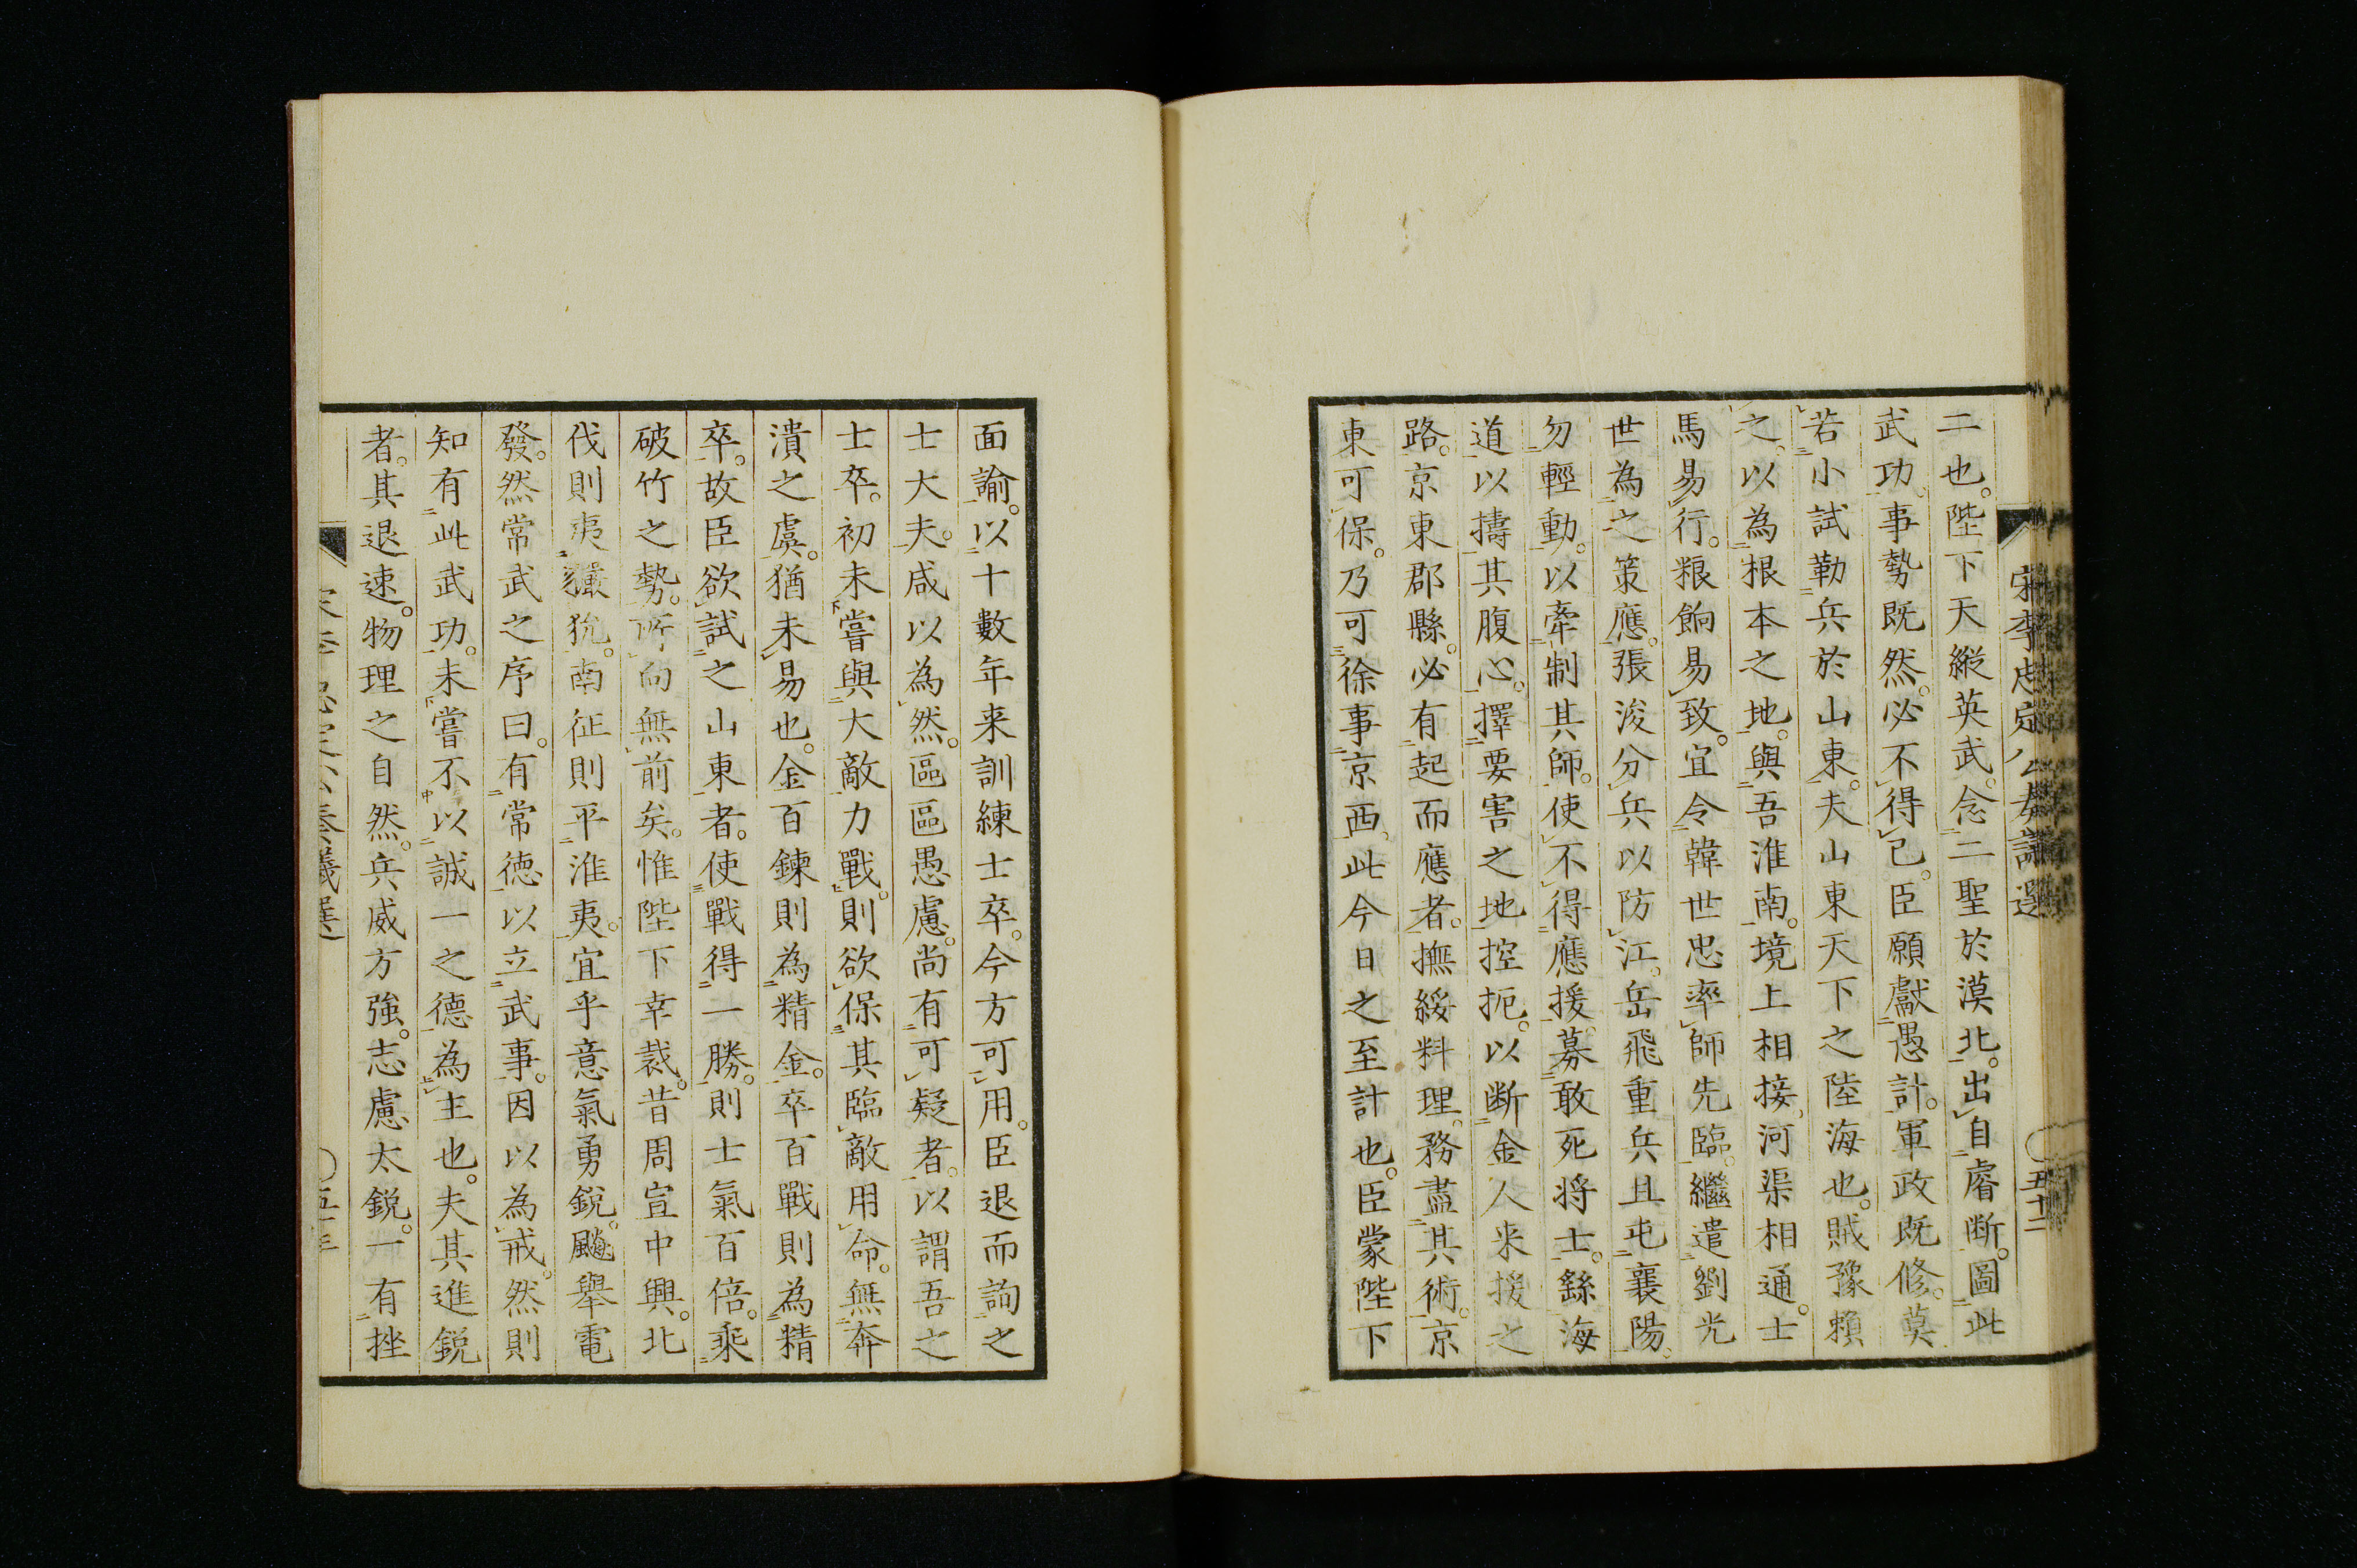 二也。陛下天縱英武。念二聖於漠北。出自睿断。圖此
武功。事勢既然。必不得已。臣願獻愚計。軍政既修。莫
若小試勒兵於山東。夫山東天下之陸海也。賊豫賴
之。以為根本之地。與吾淮南。境上相接。河渠相通。士
馬易行。粮餉易致。宜令韓世忠率師先臨。繼遣劉光
世為之策應。張浚分兵以防江。岳飛重兵且屯襄陽。
勿輕動。以牽制其師。使不得應援。募敢死將士。繇海
道以擣其腹心。擇要害之地控扼。以断金人来援之
路。京東郡縣。必有起而應者。撫綏料理。務盡其術。京
東可保。乃可徐事京西。此今日之至計也。臣蒙陛下
面諭。以十數年来訓練士卒。今方可用。臣退而詢之
士大夫。咸以為然。區區愚慮。尚有可疑者。以謂吾之
士卒。初未嘗與大敵力戰。則欲保其臨敵用命。無奔
潰之虞。猶未易也。金百鍊則為精金。卒百戰則為精
卒。故臣欲試之山東者。使戰得一勝。則士氣百倍。乘
破竹之勢。所向無前矣。惟陛下幸裁。昔周宣中興。北
伐則夷玁狁。南征則平淮夷。宜乎意氣勇鋭。飈舉電
發。然常武之序曰。有常徳以立武事。因以為戒。然則
知有此武功。未嘗不以誠一之德為主也。夫其進鋭
者。其退速。物理之自然。兵威方強。志慮太鋭。一有挫